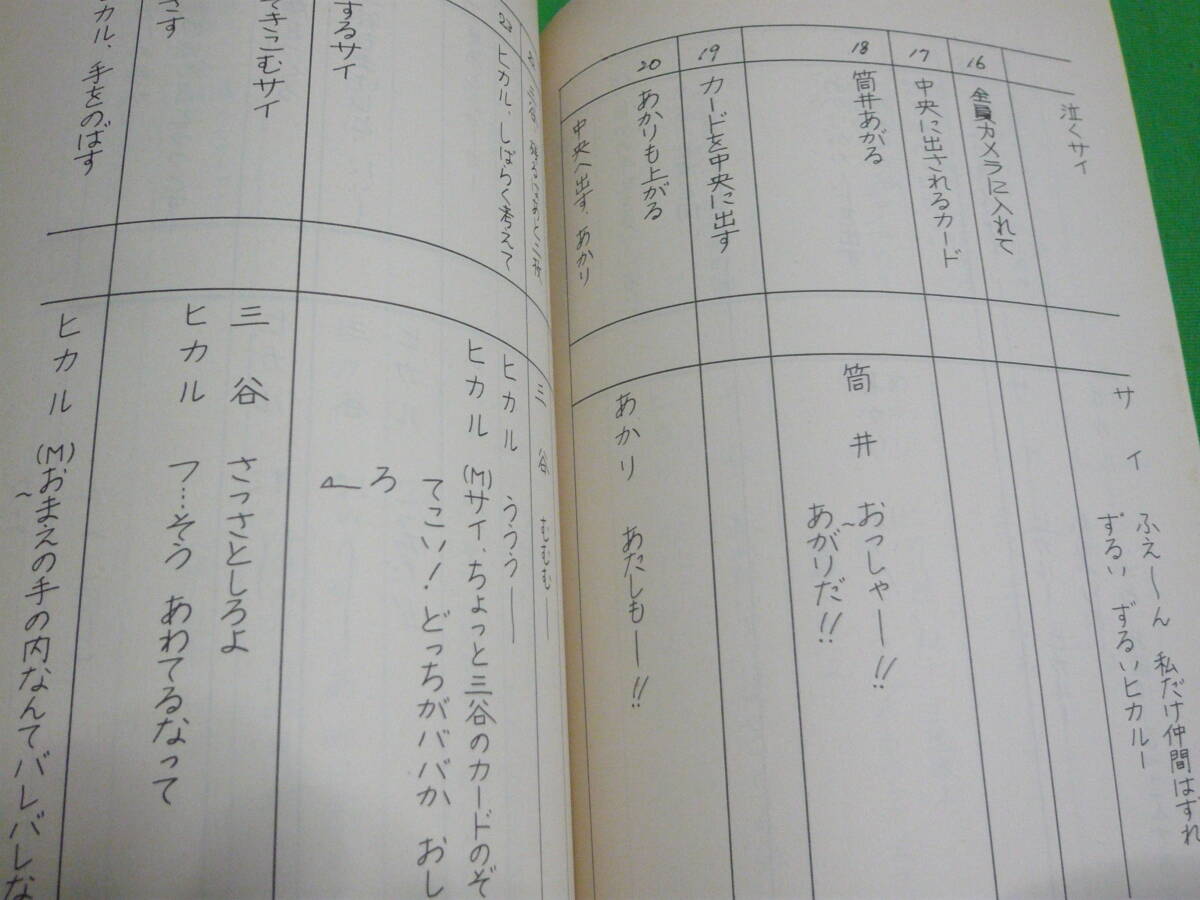 泣くサイ
サイ
ふえ～ん 私だけ仲間はずれ
ずるい ずるいヒカルー
16
全員カメラに入れて
17
中央に出されるカード
18
筒井あがる
筒井
おっしゃー!!
あがりだ!!
19
カードを中央に出す
20
あかりも上がる
中央へ出す、あかり
あかり
あたしもー!!
三谷
むむむー
ヒカル、しばらく考えて
ヒカル
ううう――
ヒカル
(M)サイ、ちょっと三谷のカードのぞ
てこい! どっちがババか おし
ろ
するサイ
きこむサイ
さす
三谷
さっさとしろよ
ヒカル
フ…そう あわてるなって
カル、手をのばす
ヒカル
(M)おまえの手の内なんてバレバレな